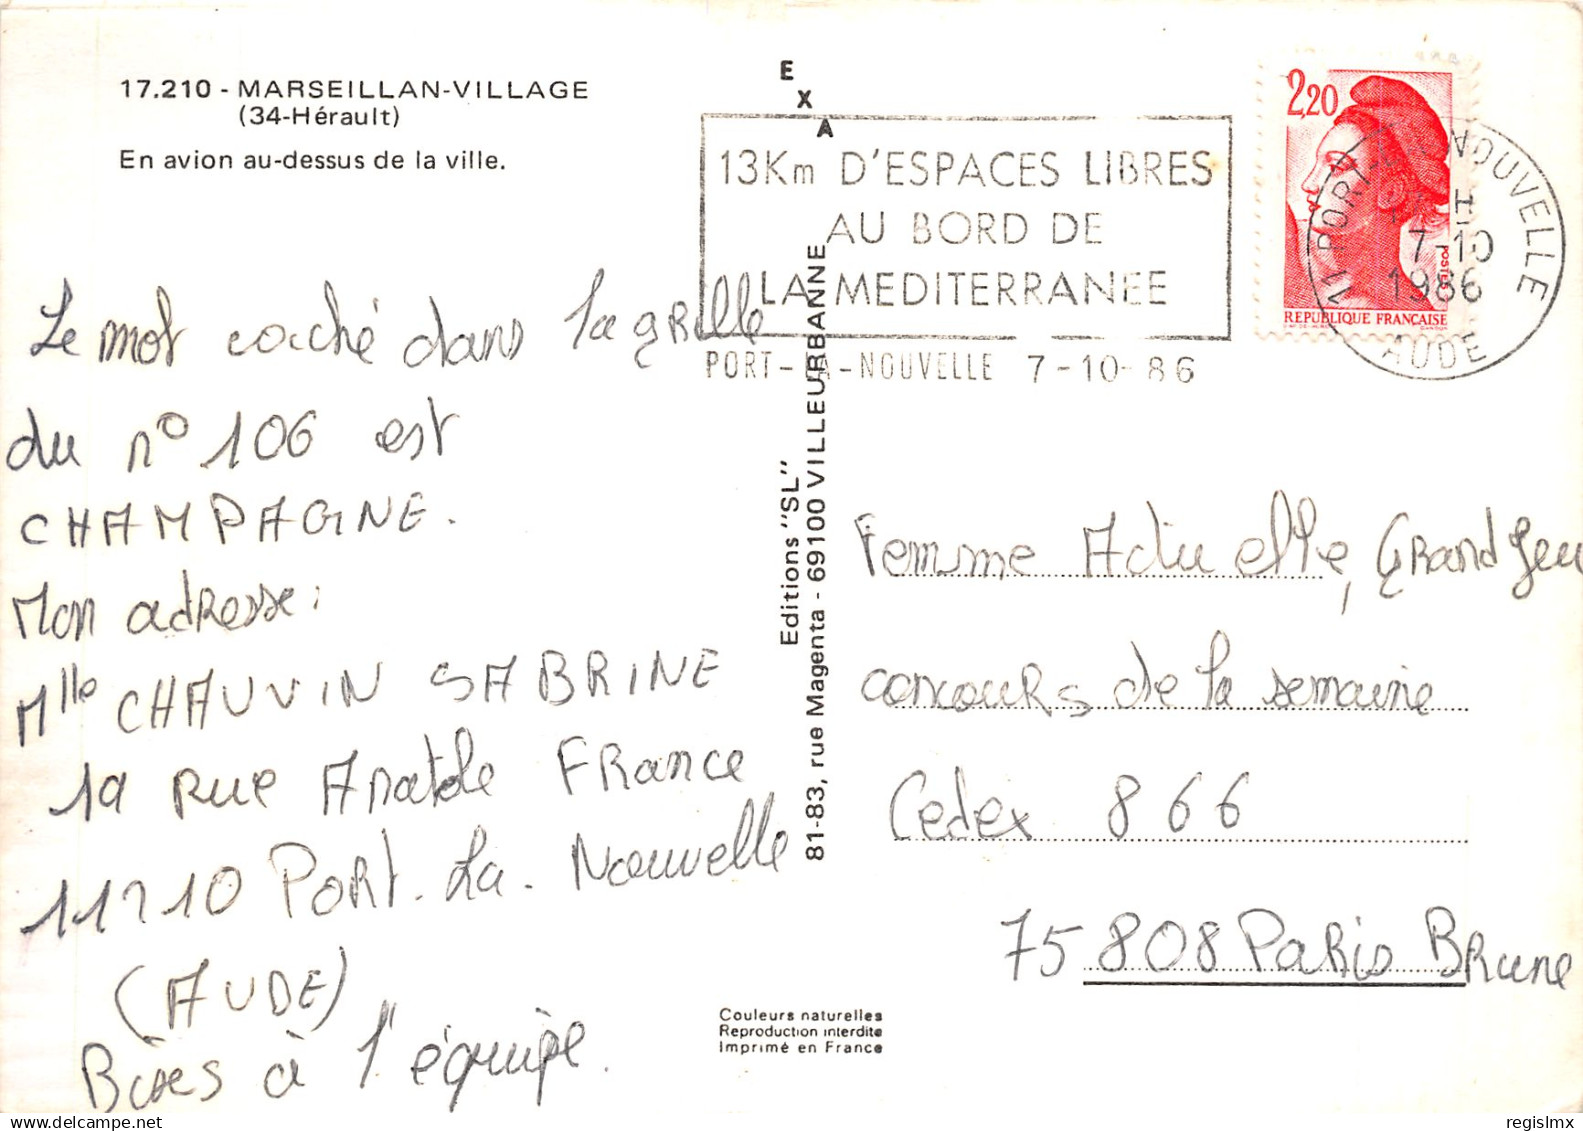 17.210 - MARSEILLAN-VILLAGE
(34-Hérault)
En avion au-dessus de la ville.
EXA
13Km D'ESPACES LIBRES
AU BORD DE
LA MEDITERRANEE
PORT-LA-NOUVELLE 7-10-86
2,20
POSTES
REPUBLIQUE FRANÇAISE
11 PORT-LA-NOUVELLE
H
7-10
1986
AUDE
Le mot caché dans la grille
du n° 106 est
CHAMPAGNE.
Mon adresse:
Mlle CHAUVIN SABRINE
19 Rue Anatole France
11210 Port-La-Nouvelle
(AUDE)
Bises à l'équipe.
Editions "SL"
81-83, rue Magenta - 69100 VILLEURBANNE
Femme Actuelle, Grand Jeu
concours de la semaine
Cedex 866
75808 Paris Brune
Couleurs naturelles
Reproduction interdite
Imprimé en France
regislmx